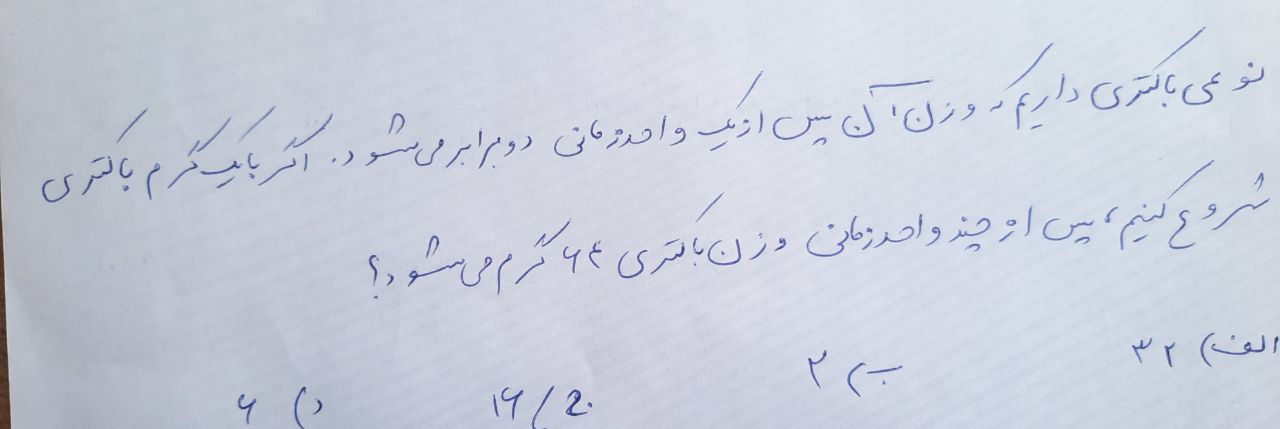 نوعی باکتری داریم که وزن آن پس از یک واحد زمانی دو برابر می‌شود. اگر با یک گرم باکتری
شروع کنیم، پس از چند واحد زمانی وزن باکتری ۶۴ گرم می‌شود؟
الف) ۳۲
ب) ۳
ج) ۱۶
د) ۶